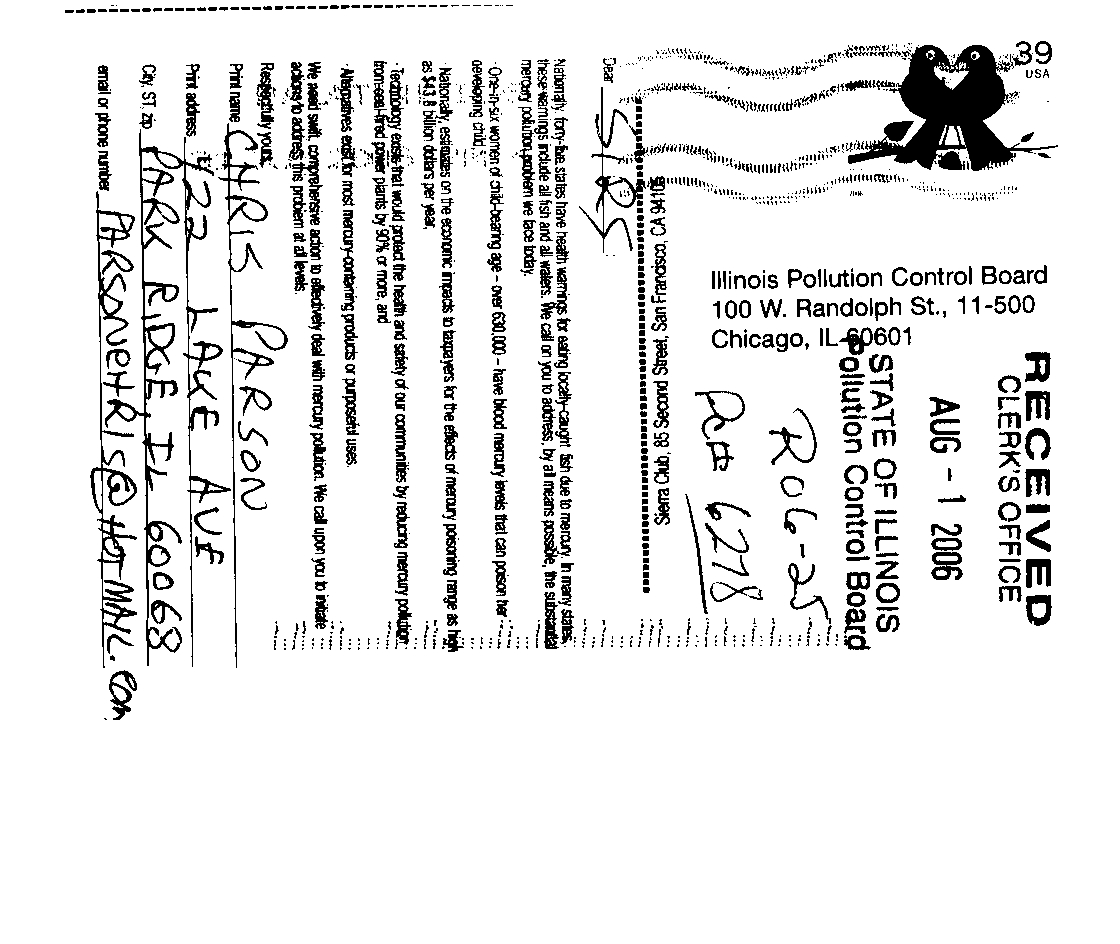 39
USA
Illinois Pollution Control Board
100 W. Randolph St., 11-500
Chicago, IL 60601
RECEIVED
CLERK'S OFFICE
AUG - 1 2006
STATE OF ILLINOIS
Pollution Control Board
R06-25
PC# 6278
Sierra Club, 85 Second Street, San Francisco, CA 94105
Dear SIRS
Nationally, forty-five states have health warnings for eating locally-caught fish due to mercury. In many states,
these warnings include all fish and all waters. We call on you to address, by all means possible, the substantial
mercury pollution problem we face today.
· One-in-six women of child-bearing age - over 630,000 - have blood mercury levels that can poison her
developing child;
· Nationally, estimates on the economic impacts to taxpayers for the effects of mercury poisoning range as high
as $43.8 billion dollars per year,
· Technology exists that would protect the health and safety of our communities by reducing mercury pollution
from coal-fired power plants by 90% or more, and
· Alternatives exist for most mercury-containing products or purposeful uses.
We need swift, comprehensive action to effectively deal with mercury pollution. We call upon you to initiate
actions to address this problem at all levels.
Respectfully yours,
Print name CHRIS PARSON
Print address 422 LAKE AVE
City, ST. zip PARK RIDGE IL 60068
email or phone number PARSONCHRIS@HOTMAIL.com